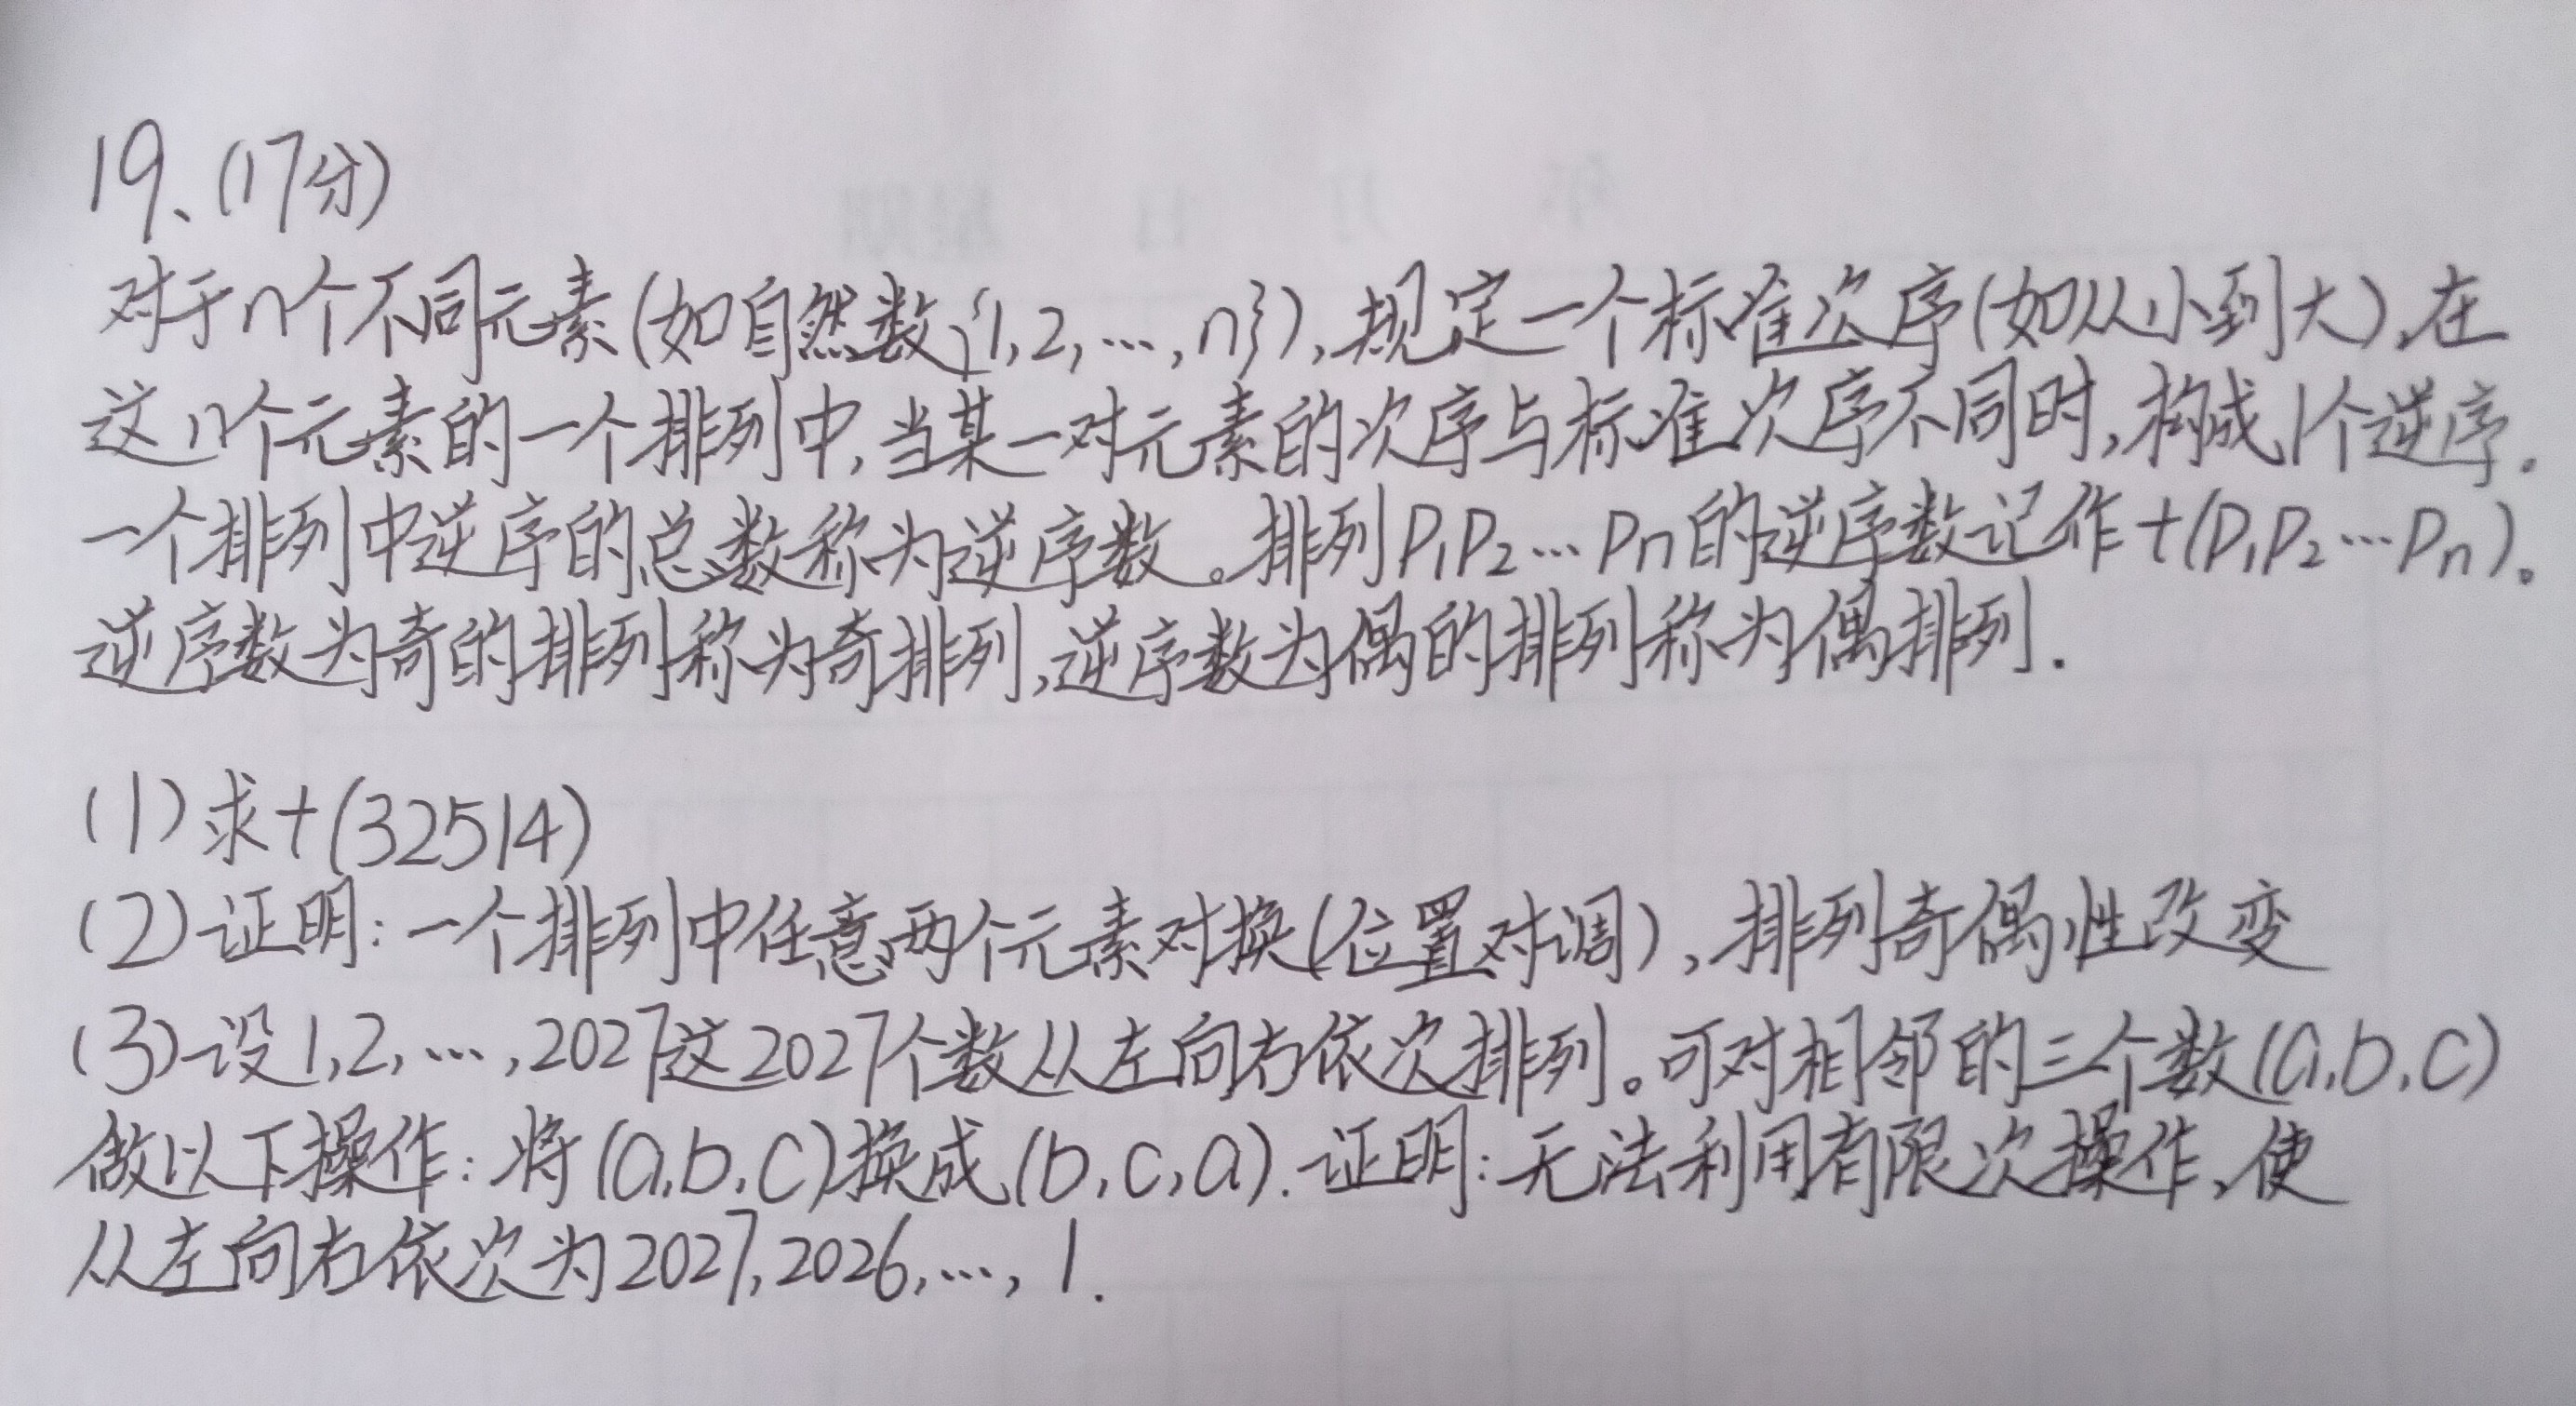 19、(17分)
对于n个不同元素(如自然数{1,2,…,n}),规定一个标准次序(如从小到大),在
这n个元素的一个排列中,当某一对元素的次序与标准次序不同时,构成1个逆序.
一个排列中逆序的总数称为逆序数。排列P₁P₂…Pn的逆序数记作t(P₁P₂…Pn)。
逆序数为奇的排列称为奇排列,逆序数为偶的排列称为偶排列.
(1)求t(32514)
(2)证明:一个排列中任意两个元素对换(位置对调),排列奇偶性改变
(3)设1,2,…,2027这2027个数从左向右依次排列。可对相邻的三个数(a,b,c)
做以下操作:将(a,b,c)换成(b,c,a).证明:无法利用有限次操作,使
从左向右依次为2027,2026,…,1.